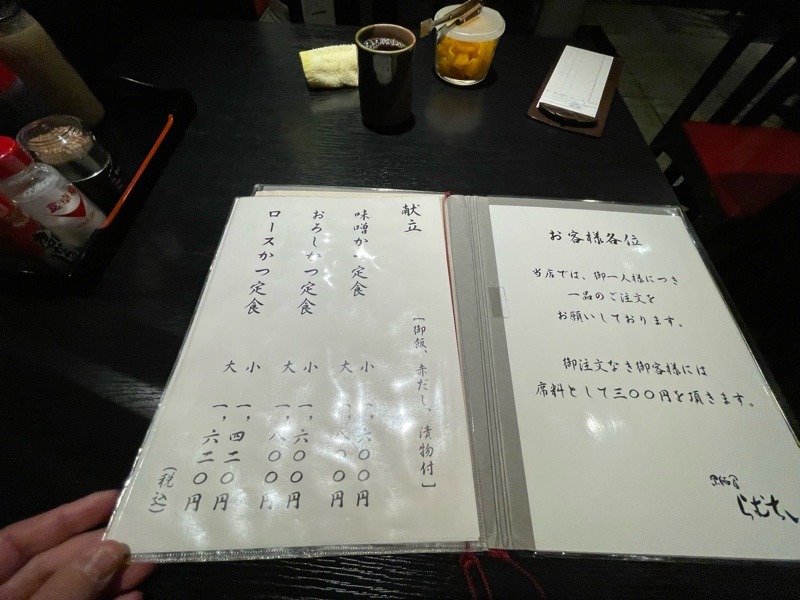 献立
[御飯、赤だし、漬物付]
味噌かつ定食
小 一,六〇〇円
大 一,八〇〇円
おろしかつ定食
小 一,六〇〇円
大 一,八〇〇円
ロースかつ定食
小 一,四二〇円
大 一,六二〇円
(税込)
お客様各位
当店では、御一人様につき
一品のご注文を
お願いしております。
御注文なき御客様には
席料として三〇〇円を頂きます。
らむちい
食卓塩